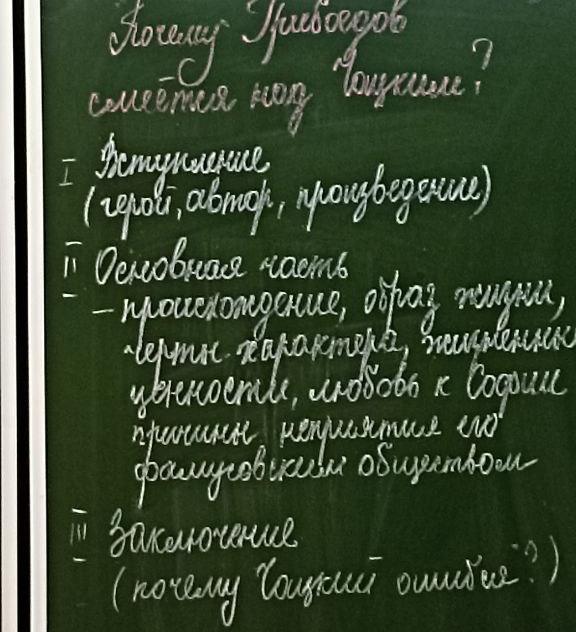 Почему Грибоедов
смеётся над Чацким?
I Вступление
(герой, автор, произведение)
II Основная часть
- происхождение, образ жизни,
черты характера, жизненны
ценности, любовь к Софии
причины неприятия его
фамусовским обществом
III Заключение
(почему Чацкий ошибся?)